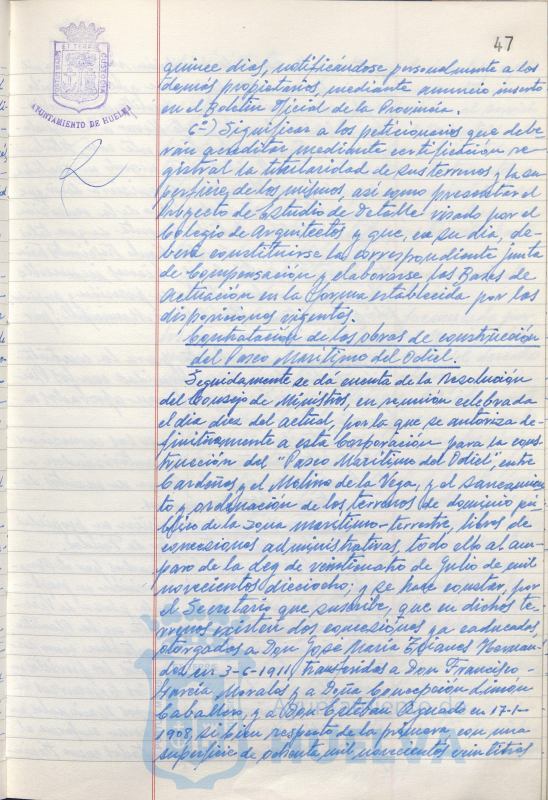 47
AYUNTAMIENTO DE HUELVA
quince dias, notificándose personalmente a los
demás propietarios, mediante anuncio inserto
en el Boletín Oficial de la Provincia.
6º) Significar a los peticionarios que debe-
rán acreditar mediante certificación re-
gistral la titularidad de sus terrenos y la su-
perficie de los mismos, así como presentar el
Proyecto de Estudio de Detalle visado por el
Colegio de Arquitectos y que, en su dia, de-
berá constituirse la correspondiente junta
de Compensación y elaborarse las Bases de
Actuación en la forma establecida por las
disposiciones vigentes.
Contratación de las obras de construcción
del Paseo Marítimo del Odiel.
Seguidamente se dá cuenta de la Resolución
del Consejo de Ministros, en reunión celebrada
el dia diez del actual, por la que se autoriza de-
finitivamente a esta Corporación para la cons-
trucción del "Paseo Marítimo del Odiel", entre
Cardeñas y el Molino de la Vega, y el saneamien-
to y ordenación de los terrenos de dominio pú-
blico de la zona marítimo-terrestre, libres de
concesiones administrativas, todo ello al am-
paro de la Ley de veinticuatro de Julio de mil
novecientos dieciocho; y se hace constar, por
el Secretario que suscribe, que en dichos te-
rrenos existen dos concesiones ya caducadas,
otorgadas a Don José María
en 3-6-1911, transferidas a Don Francisco
García Morales y a Doña Concepción Limón
Caballero, y a Don Esteban en 17-1-
1908, si bien respecto de la primera, con una
superficie de ochenta mil novecientos veintitres